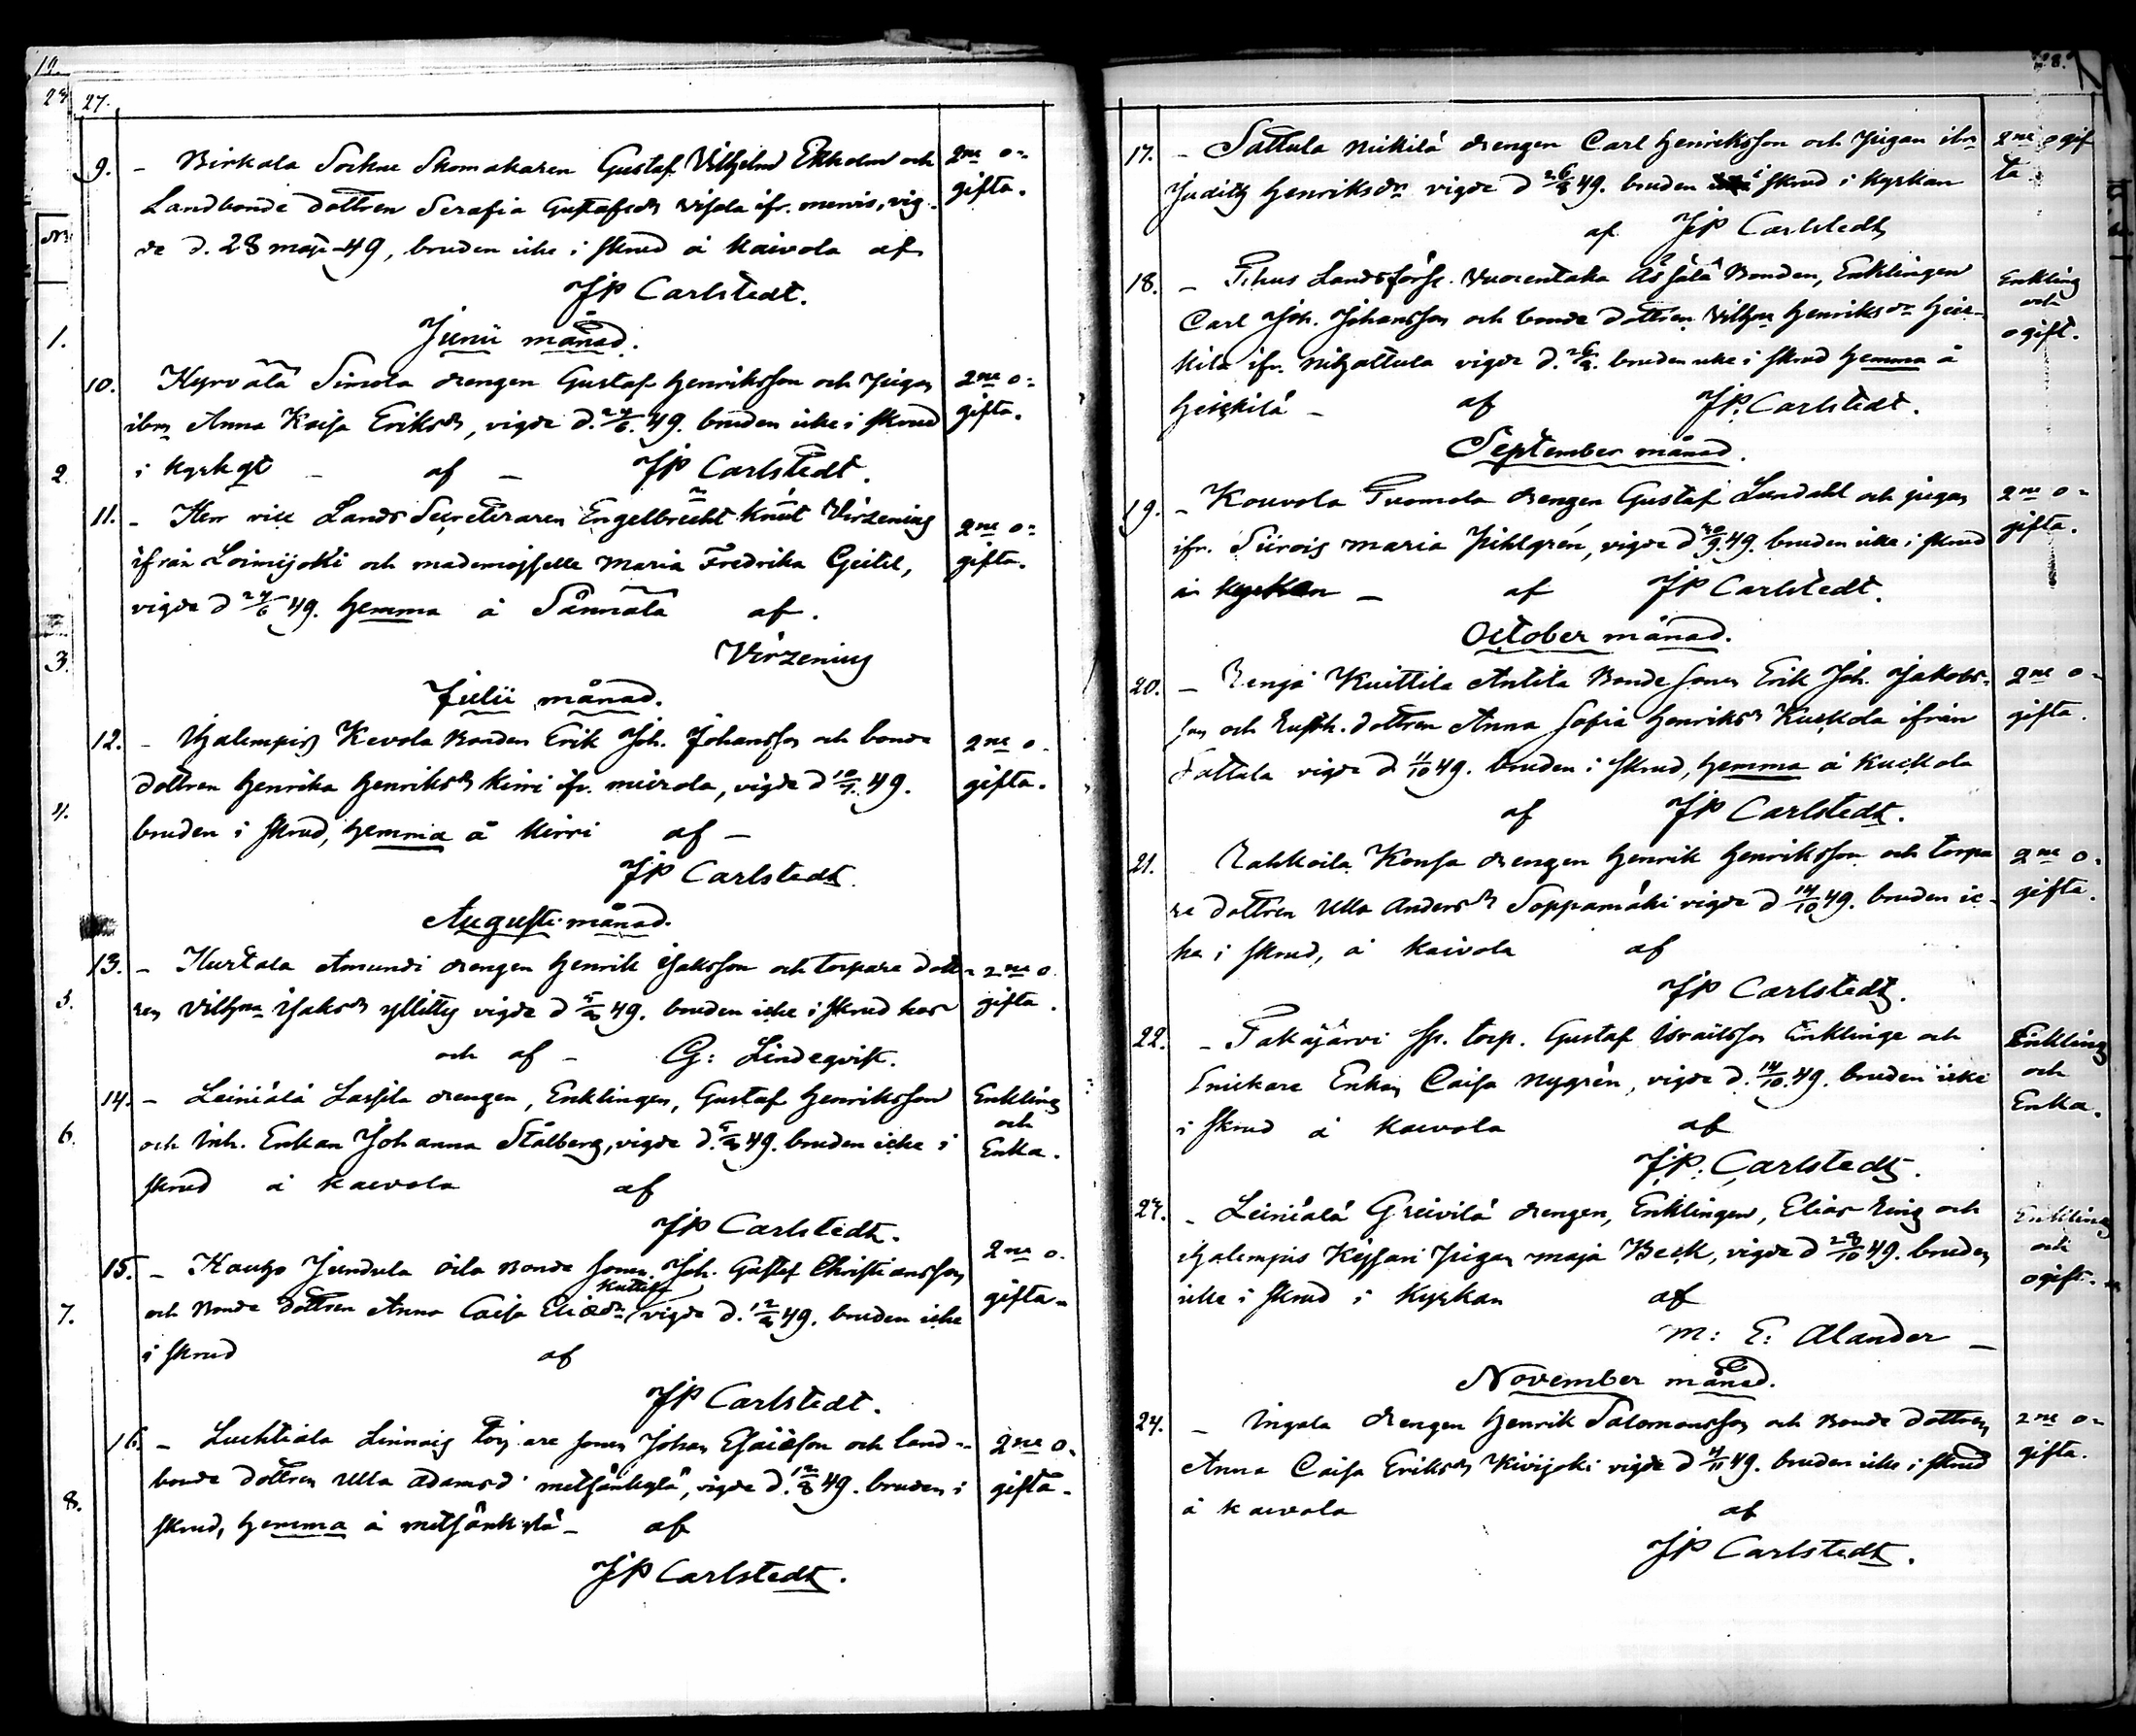 27.
9. - Birkala Sockne Skomakaren Gustaf Vilhelm Ekholm och 2ne o=
Landbonde dottren Serafia Gustafsdr ifr. menis, vig- gifta.
de d. 28 maji -49, bruden icke i skrud å Kaivola af
JP Carlstedt.
Junii månad.
10. Kyrvälä Simola drengen Gustaf Henriksson och pigan 2ne o=
ibm Anna Kajsa Eriksdr, vigde d. 24/6. 49. bruden icke i skrud gifta.
i kyrkan - af - JP Carlstedt.
11. - Herr vice Lands Secreteraren Engelbrecht Knut Virzenius 2ne o=
ifrån Loimijoki och mademojselle Maria Fredrika Geitel, gifta.
vigde d 24/6 49. hemma å Sännälä af.
Virzenius
Julii månad.
12. - Hjalempis Kevola Bonden Erik Joh. Johansson och bonde 2ne o-
dottren Henrika Henriksdr Kirri ifr. , vigde d 10/7. 49. gifta.
bruden i skrud, hemma å Kirri af -
JP Carlstedt.
Augusti månad.
13. - Kurtala Amundi drengen Henrik Isaksson och torpare dott- 2ne o.
ren Vilhma Isaksdr yllitty vigde d 5/8 49. bruden icke i skrud hos gifta.
och af - G: Lindeqvist.
14. - Leiniälä Lassila drengen, Enklingen, Gustaf Henriksson Enkling
och Inh. Enkan Johanna Stålberg, vigde d. 5/8 49. bruden icke i och Enka.
skrud å Kaivola af
JP Carlstedt.
15. - Kautzo Jundula Oila Bonde sonen Joh. Gustaf Christiansson 2ne o-
och Bonde dottren Anna Caisa Eliædr vigde d. 12/8 49. bruden icke gifta-
i skrud af
JP Carlstedt.
16. - Luchtiala Linnais Torpare sonen Johan Esaiæson och land- 2ne o-
bonde dottren Ulla Adamsd. Metsänkylä, vigde d. 12/8 49. bruden i gifta-
skrud, hemma å Metsänkylä - af
JP Carlstedt.
17. - Sattula Mickilä drengen Carl Henriksson och Pigan ibm 2ne ogif
Judith Henriksdr vigde d 26/8 49. bruden i skrud i Kyrkan ta
af JP Carlstedt
18. - Landsförs. Vuorentaka Bonden, Enklingen Enkling
Carl Joh. Johansson och bonde dottren Vilhma Henriksdr Heic- och
kilä ifr. Nihattula vigde d. 26/8. bruden icke i skrud hemma å ogift.
Heickilä - af JP. Carlstedt.
September månad.
19. - Kouvola Tuomola drengen Gustaf Lundahl och pigan 2ne o=
ifr. Siirois Maria Pihlgrén, vigde d 30/9. 49. bruden icke i skrud gifta.
i kyrkan - af JP Carlstedt.
October månad.
20. - Renjä Kuittila Antila Bonde sonen Erik Joh. Jakobs- 2ne o-
son och Rusth. dottren Anna Sofia Henriksdr Kuckola ifrån gifta.
Sattula vigde d 11/10 49. bruden i skrud, hemma å Kuckola
af JP Carlstedt.
21. Rahkoila Konsa drengen Henrik Henriksson och torpa 2ne o.
re dottren Ulla Andersdr Soppamäki vigde d 14/10 49. bruden ic- gifta.
ke i skrud, å Kaivola af
JP Carlstedt.
22. - Takajärvi Sp. torp. Gustaf Israelsson Enklinge och Enkling
Snickare Enkan Caisa Nygrén, vigde d. 14/10. 49. bruden icke och
i skrud å Kaivola af Enka.
JP. Carlstedt.
23. - Leiniälä Greivilä drengen, Enklingen, Elias Ring och Enkling
Hjalempis Keppari Pigan Maja Beck, vigde d 28/10 49. bruden och
icke i skrud i Kyrkan af ogift.
M: E: Alander -
November månad.
24. - Ingala drengen Henrik Salomonsson och Bonde dottren 2ne o-
Anna Caisa Eriksdr Kivijoki vigde d 4/11 49. bruden icke i skrud gifta.
å Kaivola af
JP Carlstedt.